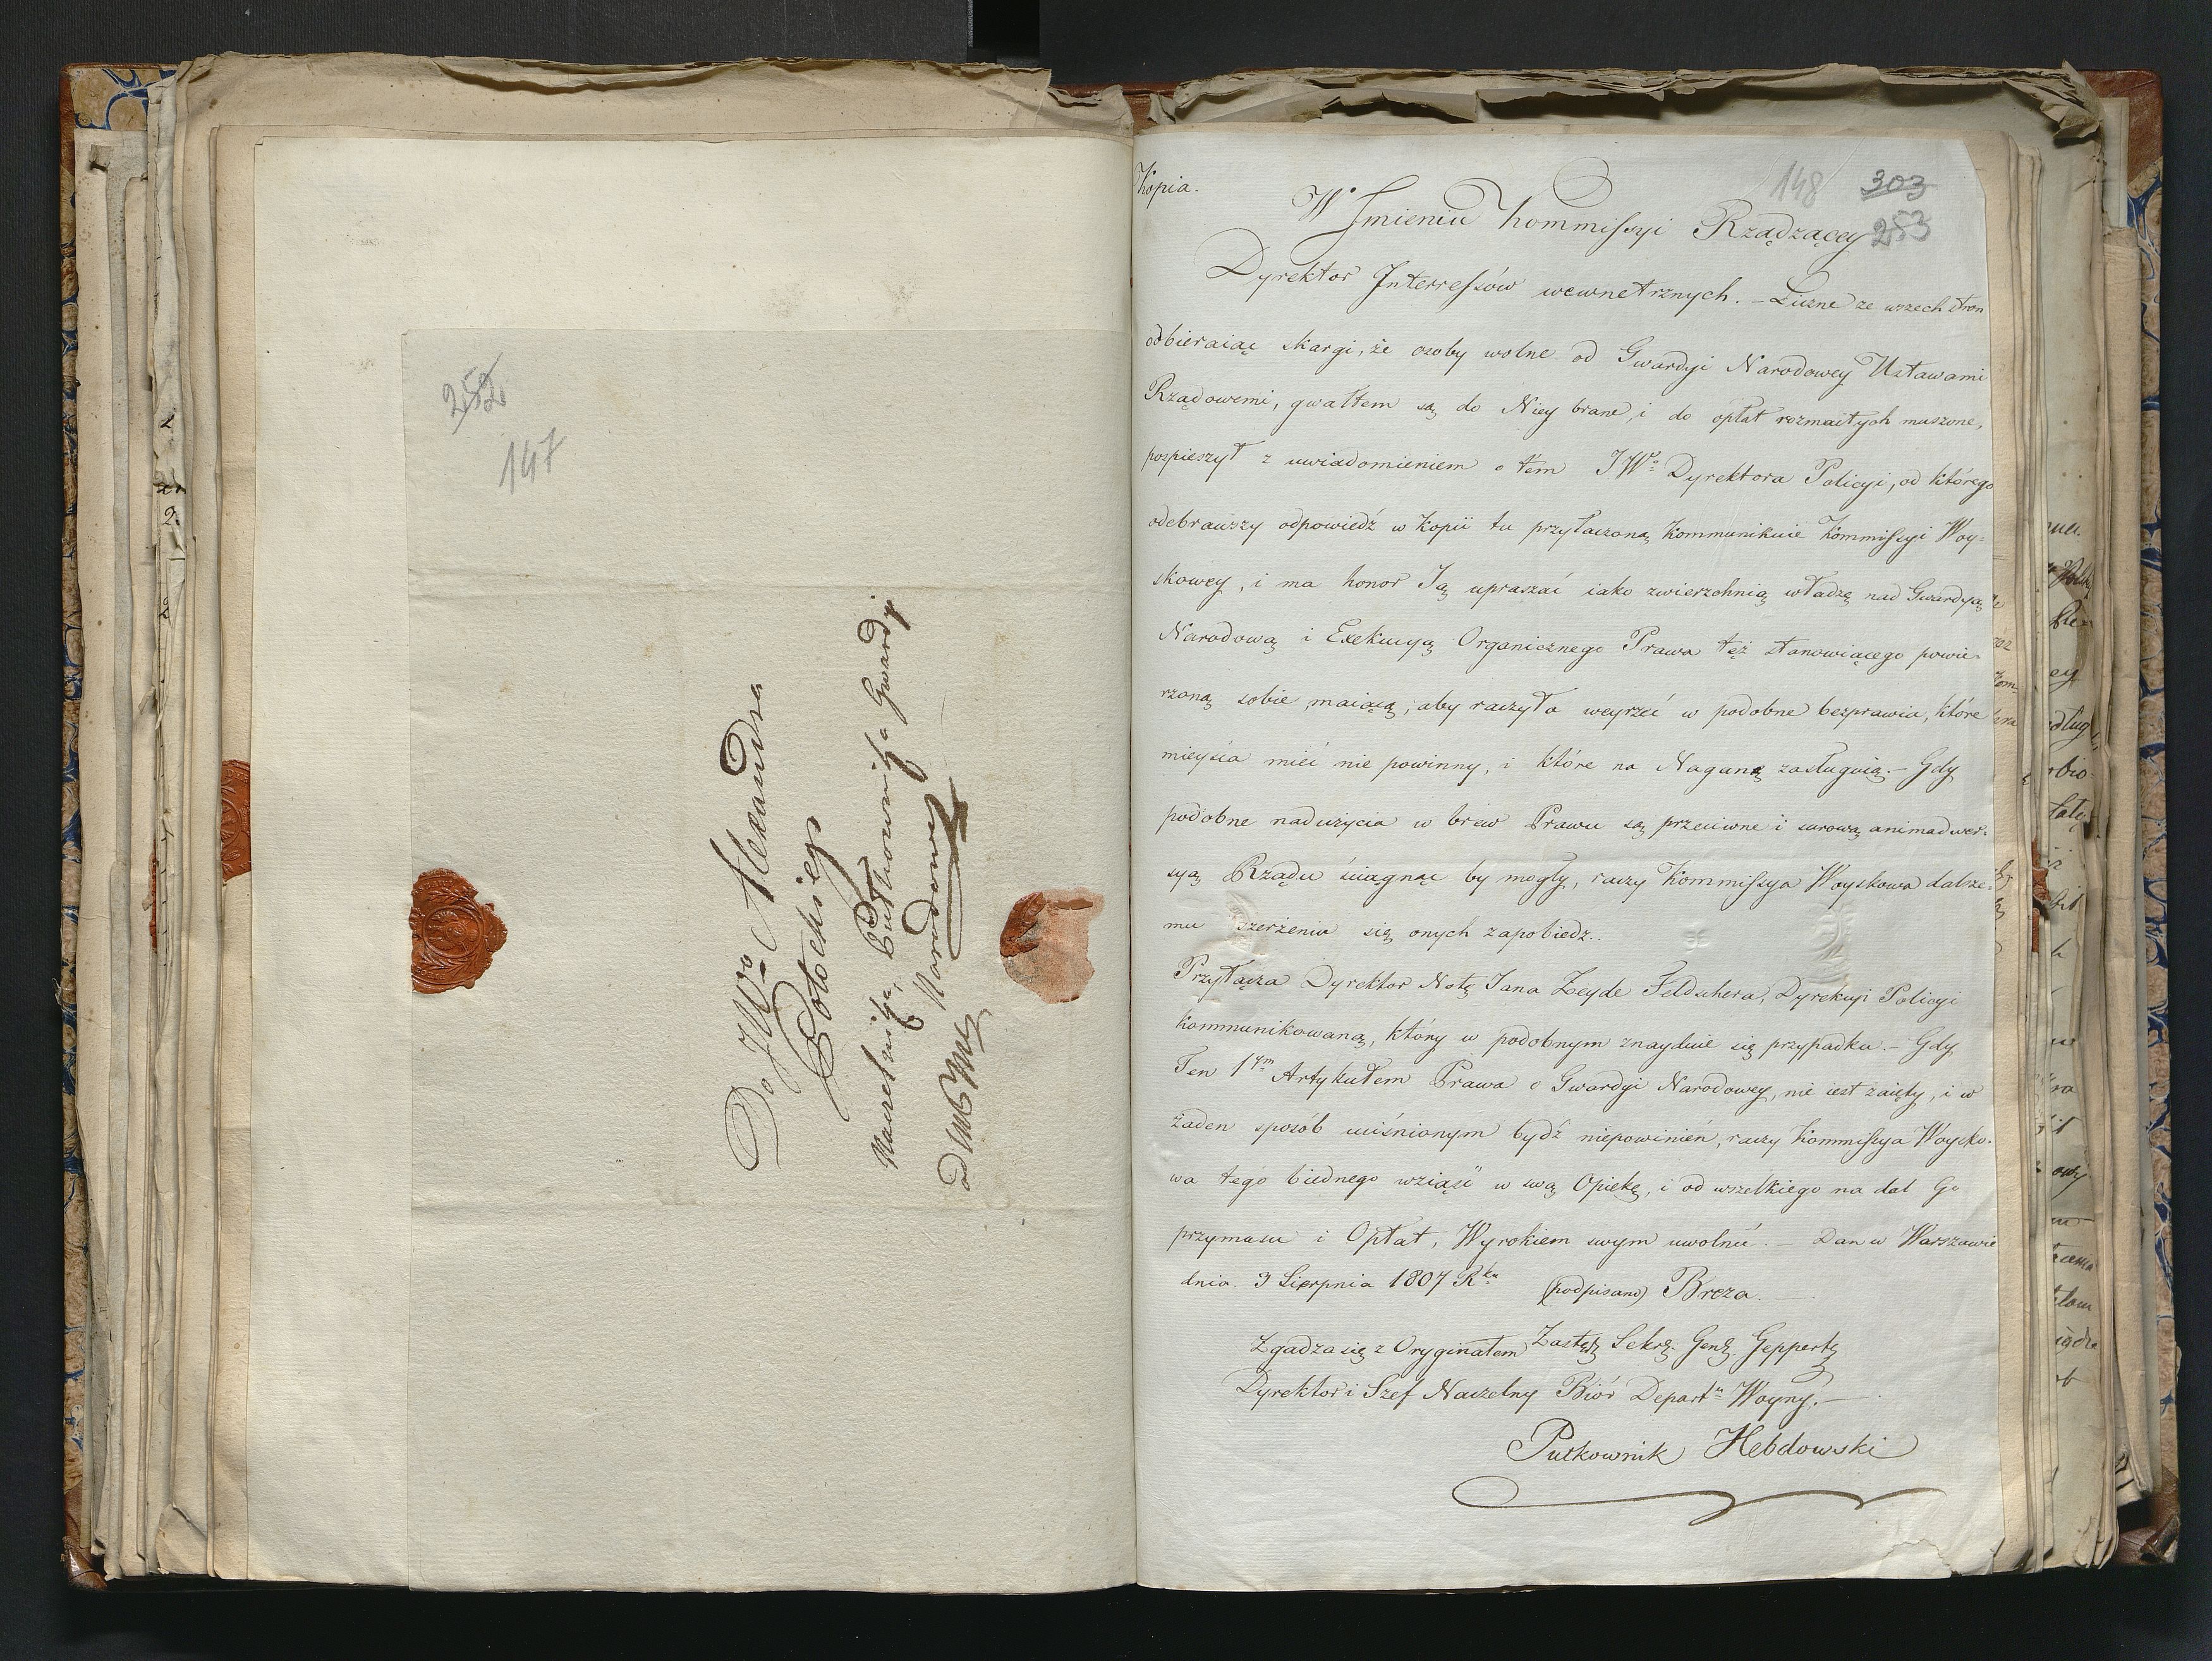 252
147
Do JWgo Alexandra
Potockiego
Naczelnika, Pułkownika Gwardyi
Narodowey
Kopia.
148 303
253
W Jmieniu Kommissyi Rządzącey
Dyrektor Jnterressów wewnetrznych. – Liczne ze wszech stron
odbieraiąc skargi, że osoby wolne od Gwardyi Narodowey Ustawami
Rządowemi, gwałtem są do Niey brane, i do opłat rozmaitych muszone,
pospieszył z uwiadomieniem o tém JWo Dyrektora Policyi, od którego
odebrawszy odpowiedź w Kopii tu przyłaczoną Kommunikuie Kommissyi Woy=
skowey, i ma honor Ją upraszać iako zwierzchnią władzę nad Gwardyą
Narodową i Exekucyą Organicznego Prawa też stanowiącego powie=
rzoną sobie maiącą, aby raczyła weyrzeć w podobne bezprawia, które
mieysca mieć nie powinny, i które na Naganę zasługuią. – Gdy
podobne nadużycia w brew Prawu są przeciwne i surową animadwer=
syą Rządu ściągnąć by mogły, raczy Kommissya Woyskowa dalsze=
mu szerzeniu się onych zapobiedz.
Przyłącza Dyrektor Notę Jana Zeyde Feldschera, Dyrekcyi Policyi
kommunikowaną, który w podobnym znayduie się przypadku. – Gdy
Ten 1ym Artykułem Prawa o Gwardyi Narodowey, nie iest zaięty, i w
żaden sposób uciśnionym bydź niepowinień, raczy Kommissya Woysko=
wa tego biednego wziąść w swą Opiekę, i od wszelkiego na dal Go
przymusu i Opłat, Wyrokiem swym uwolnić. Dan w Warszawie
dnia 3 Sierpnia 1807 Rku (podpisano) Breza.
Zgadza się z Oryginałem Zastęp Sekr. Gen. Geppert
Dyrektor i Szef Naczelny Biór Departu Woyny. –
Pułkownik Hebdowski